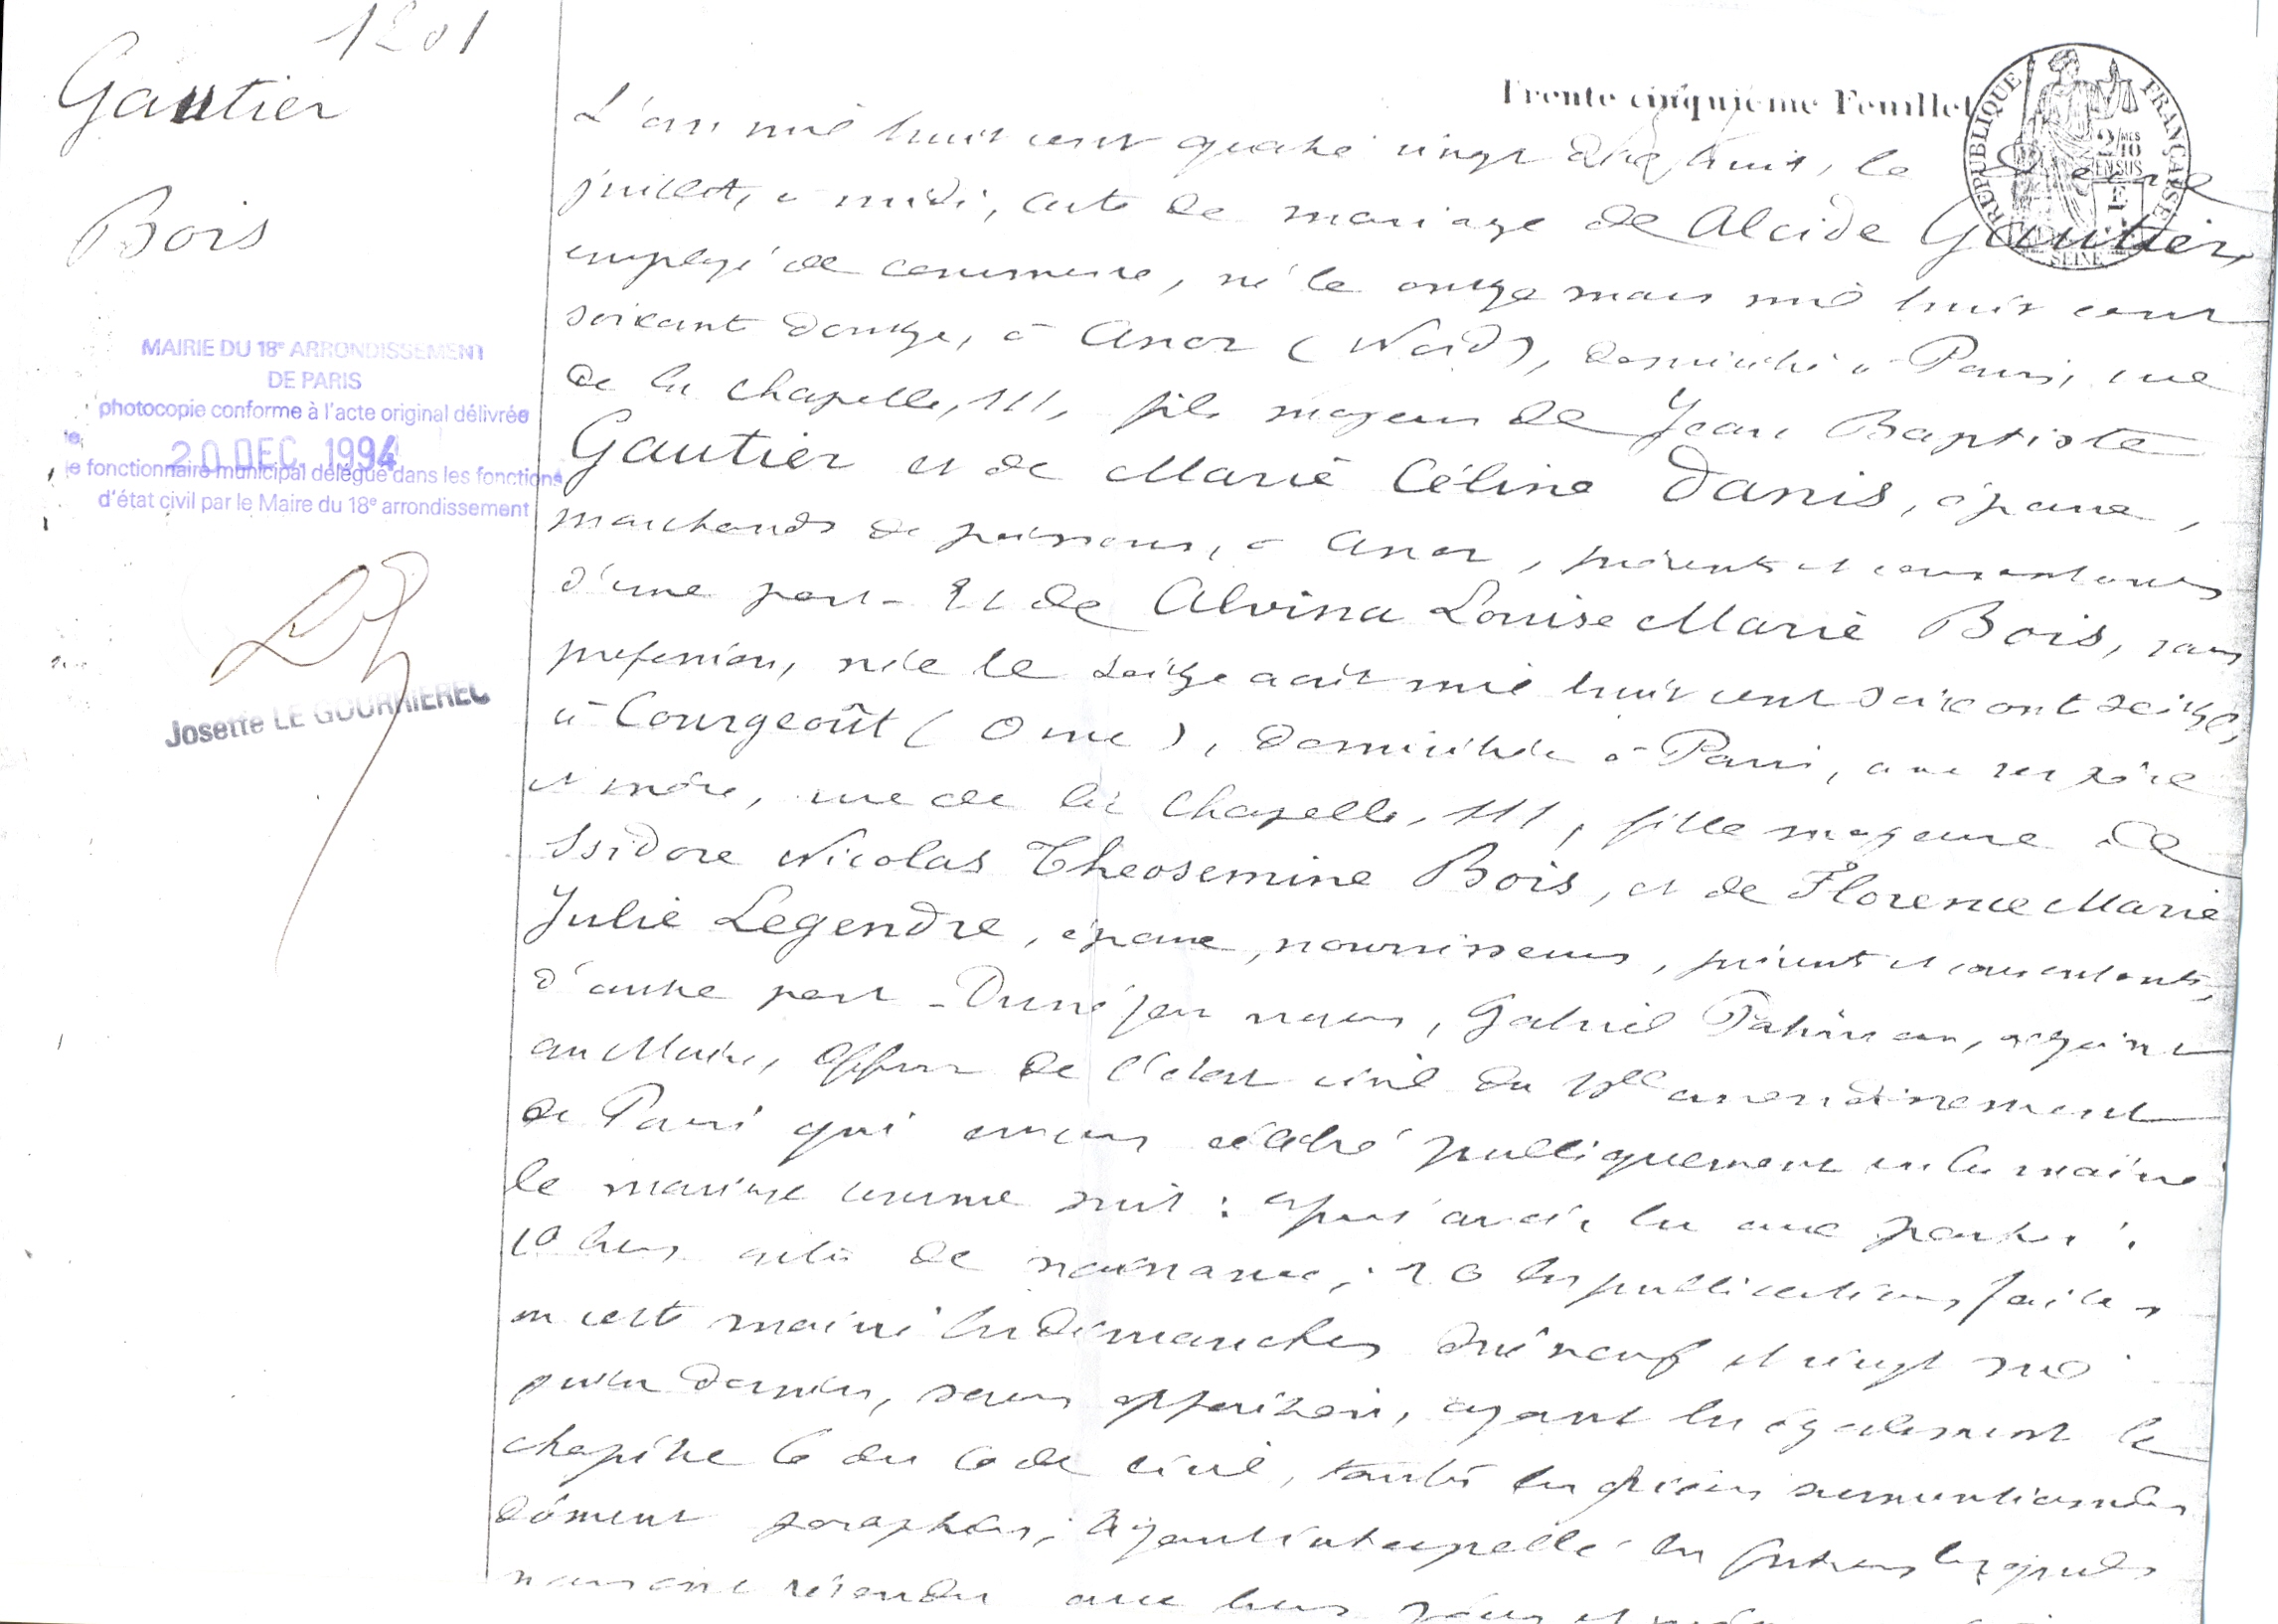 1201
Gautier
Bois
MAIRIE DU 18e ARRONDISSEMENT
DE PARIS
photocopie conforme à l'acte original délivrée
le,
20 DEC. 1994
le fonctionnaire municipal délégué dans les fonctions
d'état civil par le Maire du 18e arrondissement
Josette LE GOURRIEREC
Trente cinquième Feuillet
REPUBLIQUE FRANÇAISE
2/10 MES
EN SUS
SEINE
L'an mil huit cent quatre vingt dix huit, le
juillet, à midi, acte de mariage de Alcide Gautier,
employé de commerce, né le onze mars mil huit cent
soixante douze, à Anor (Nord), domicilié à Paris, rue
de la Chapelle, 111, fils majeur de Jean Baptiste
Gautier et de Marie Céline Danis, époux,
marchands de poissons, à Anor, présents et consentants
d'une part - Et de Alvina Louise Marie Bois, sans
profession, née le seize août mil huit cent soixante seize,
à Courgeoût (Orne), domiciliée à Paris, avec ses père
et mère, rue de la Chapelle, 111, fille majeure de
Isidore Nicolas Theosemine Bois, et de Florence Marie
Julie Legendre, époux, nourrisseurs, présents et consentants,
d'autre part - Dressé par nous, Gabriel adjoint
au Maire, officier de l'état civil du 18e arrondissement
de Paris qui avons célébré publiquement en la mairie
le mariage comme suit : après avoir lu aux parties :
1o leurs actes de naissance ; 2o les publications faites
en cette mairie les dimanches dix neuf et vingt six
juin dernier, sans opposition, ayant lu également le
chapitre 6 du Code civil, toutes les pièces susmentionnées
dûment paraphées ; Ayant interpellé les futurs lesquels
nous ont répondu avec leurs